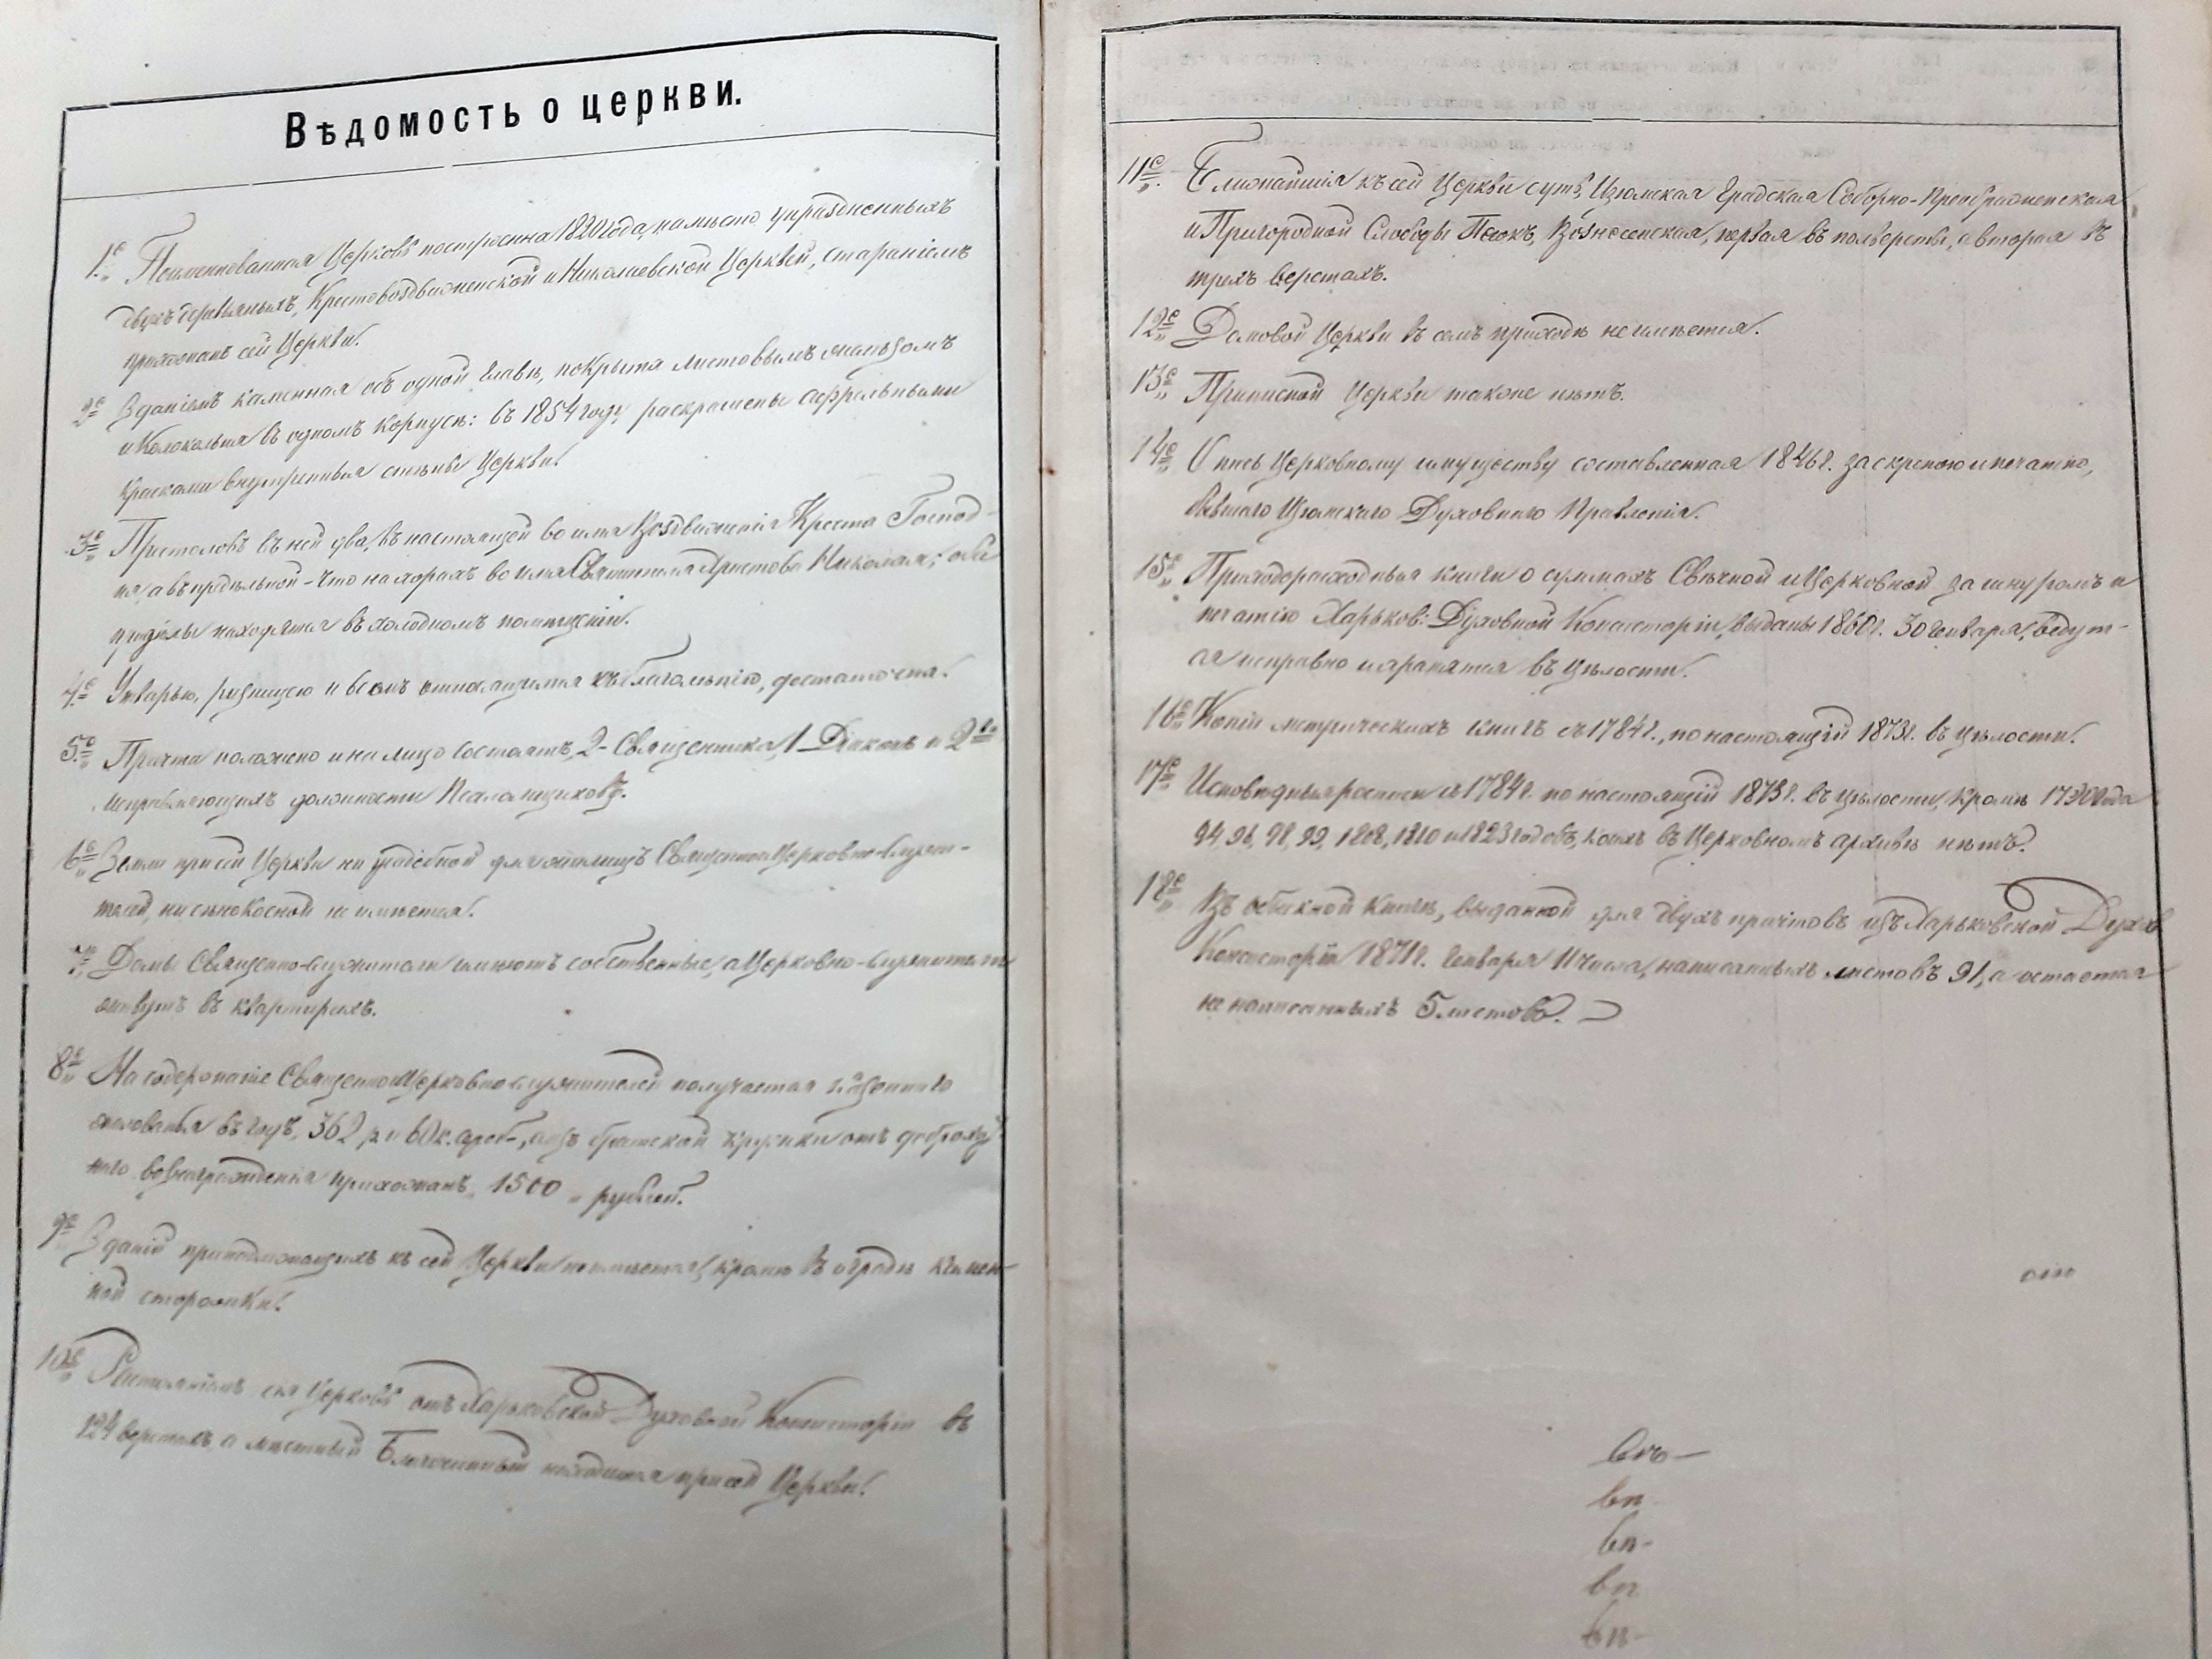 Вѣдомость о церкви.
1.е Поименованная Церковь построена 1820 года, на мѣсто упраздненныхъ
двухъ деревяныхъ, Крестовоздвиженской и Николаевской Церквей, стараніемъ
прихожанъ сей Церкви.
2е Зданіемъ каменная объ одной главѣ, покрыта листовымъ желѣзомъ
и Колокольня въ одномъ корпусѣ: въ 1854 году раскрашены аффрельными
красками внутреннія стѣны Церкви.
3е Престоловъ въ ней два, въ настоящей во имя Воздвиженія Креста Господ-
ня, а въ придѣльной - что на хорахъ во имя Святителя Христова Николая; оба
придѣлы находятся въ холодномъ помѣщеніи.
4.е Утварью, ризницею и всемъ относящимся къ благолѣпію, достаточна.
5.е Причта положено и на лицо состоятъ, 2 - Священника, 1 Діаконъ и 2
исправляющихъ должности Псаломщиковъ.
6е Земли при сей Церкви ни усадебной для жилищъ Священно и Церковно-служи-
телей, ни сѣнокосной не имѣется.
7е Домы Священно-служители имѣютъ собственные, а Церковно-служители
живутъ въ квартирахъ.
8е На содержаніе Священно и Церковно-служителей получается казеннаго
жалованья въ годъ, 362 р. и 60 к. сереб., а изъ братской кружки отъ доброхот
наго вознагражденія прихожанъ 1500 рублей.
9е Зданій принадлежащихъ къ сей Церкви не имѣется, кромѣ въ оградѣ камен-
ной сторожки.
10е Разстояніемъ сія Церковь отъ Харьковской Духовной Консисторіи въ
124 верстахъ, а мѣстный Благочинный находится при сей Церкви.
11е Ближайшія къ сей Церкви суть, Изюмская Градская Соборно-Преображенская
и Пригородной Слободы Песокъ, Вознесенская, первая въ полверстѣ, а вторая въ
трехъ верстахъ.
12е Домовой Церкви въ семъ приходѣ не имѣется.
13е Приписной Церкви также нѣтъ.
14е Опись Церковному имуществу составленная 1846 г. за скрепою и печатью,
бывшаго Изюмскаго Духовнаго Правленія.
15е Приходорасходныя книги о суммахъ Свѣчной и Церковной за шнуромъ и
печатію Харьков: Духовной Консисторіи, выданы 1860 г. 30 Генваря, ведут-
ся исправно и хранятся въ цѣлости.
16е Копіи метрическихъ книгъ съ 1784 г., по настоящій 1873 г. въ цѣлости.
17е Исповѣдныя росписи съ 1784 г. по настоящій 1873 г. въ цѣлости, кромѣ 1790 года
94, 96, 98, 99, 1808, 1810 и 1823 годовъ, коихъ въ Церковномъ архивѣ нѣтъ.
18е Въ обыскной книгѣ, выданной для двухъ причтовъ изъ Харьковской Духов
Консисторіи 1871 г. Генваря 11 числа, написанныхъ листовъ 91, а остается
не написанныхъ 5 листовъ.